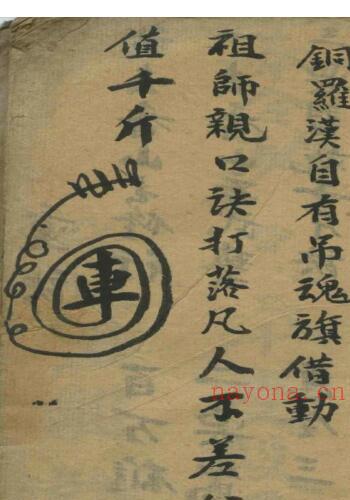 銅羅漢自有吊魂旗借動
祖師親口訣打落凡人不差
值千斤
車
nayona.cn